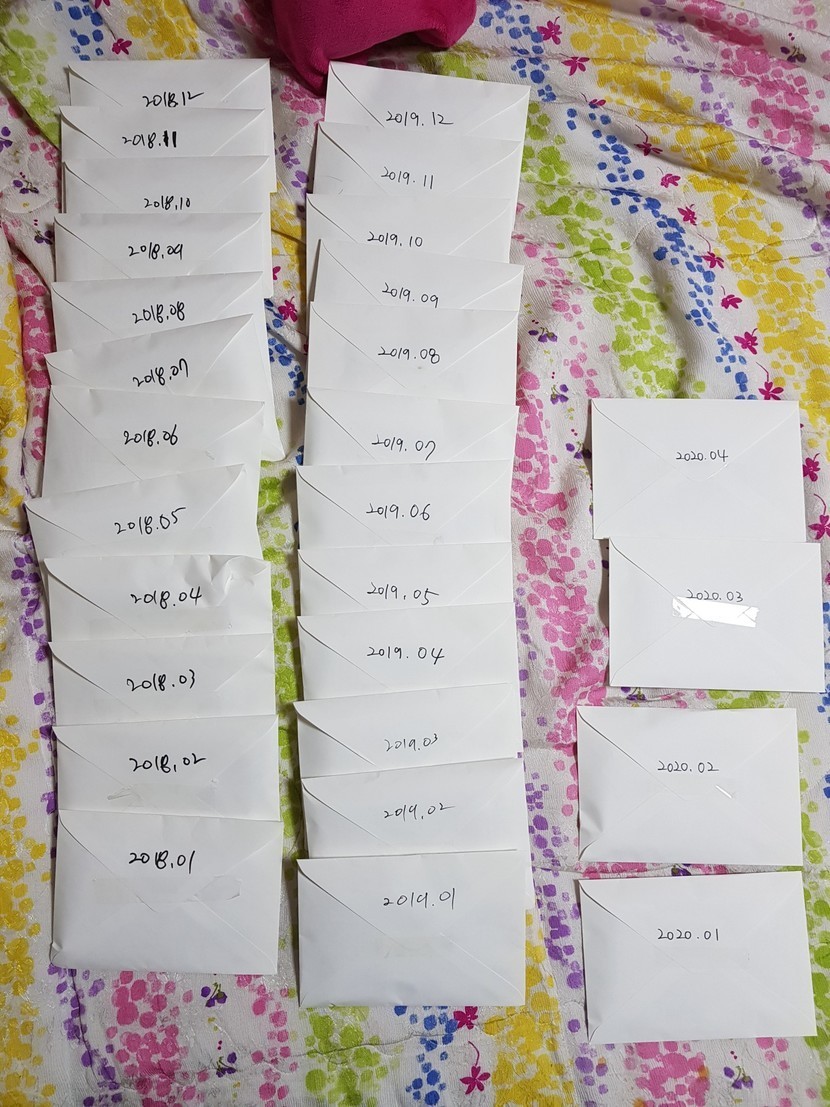 2018.12
2018.11
2018.10
2018.09
2018.08
2018.07
2018.06
2018.05
2018.04
2018.03
2018.02
2018.01
2019.12
2019.11
2019.10
2019.09
2019.08
2019.07
2019.06
2019.05
2019.04
2019.03
2019.02
2019.01
2020.04
2020.03
2020.02
2020.01